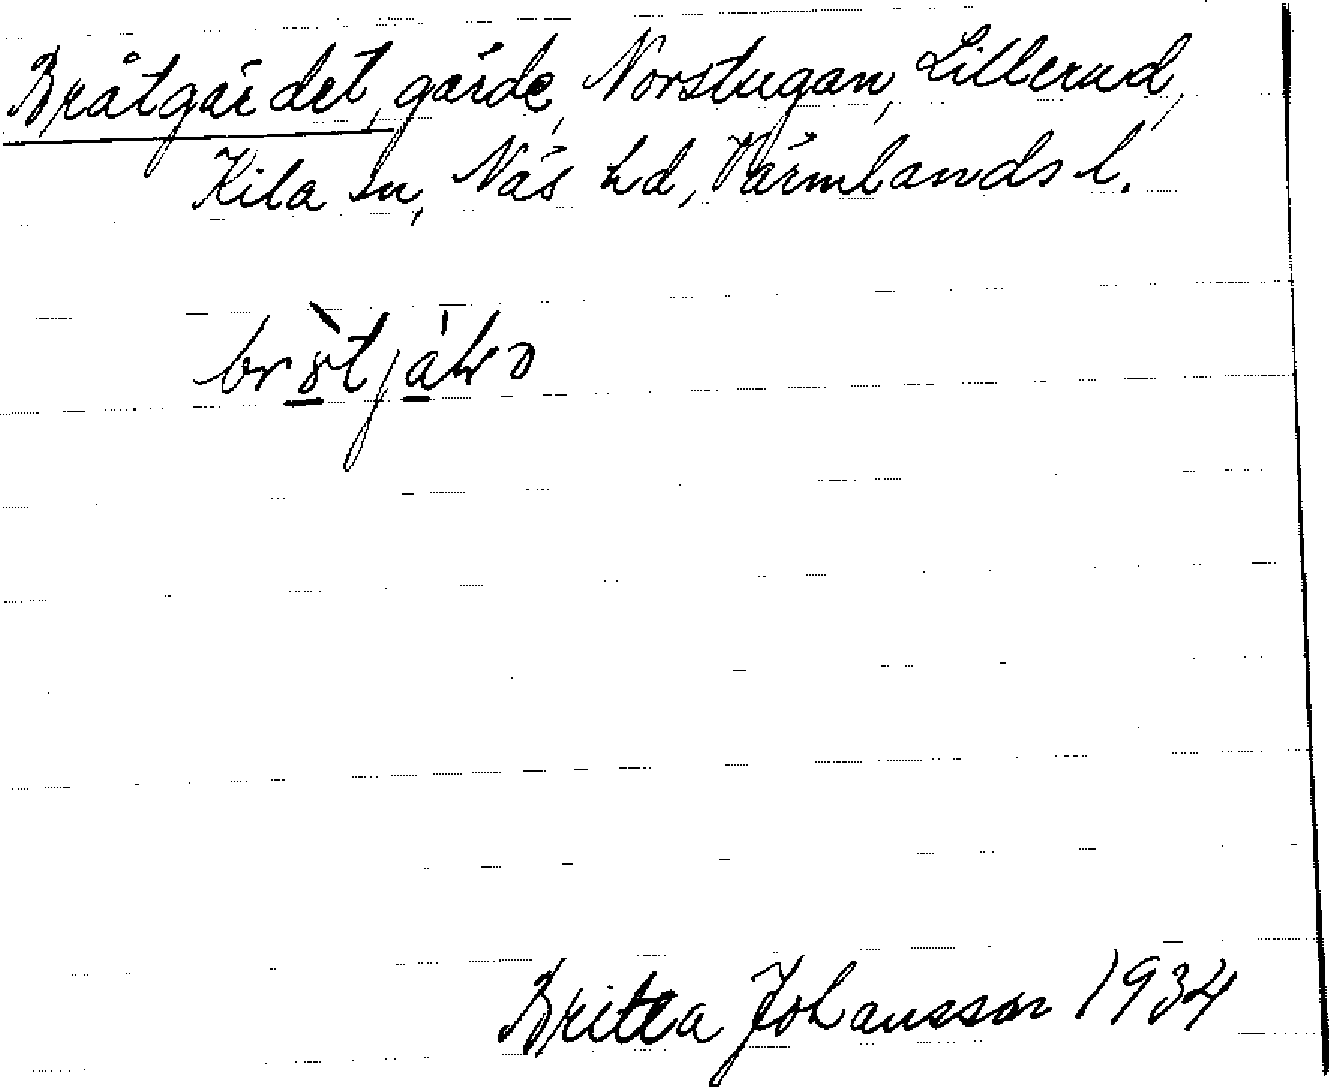 Bråtgärdet, gärde, Norstugan, Lillerud,
Kila sn, Näs hd, Värmlands l.
Britta Johansson 1934